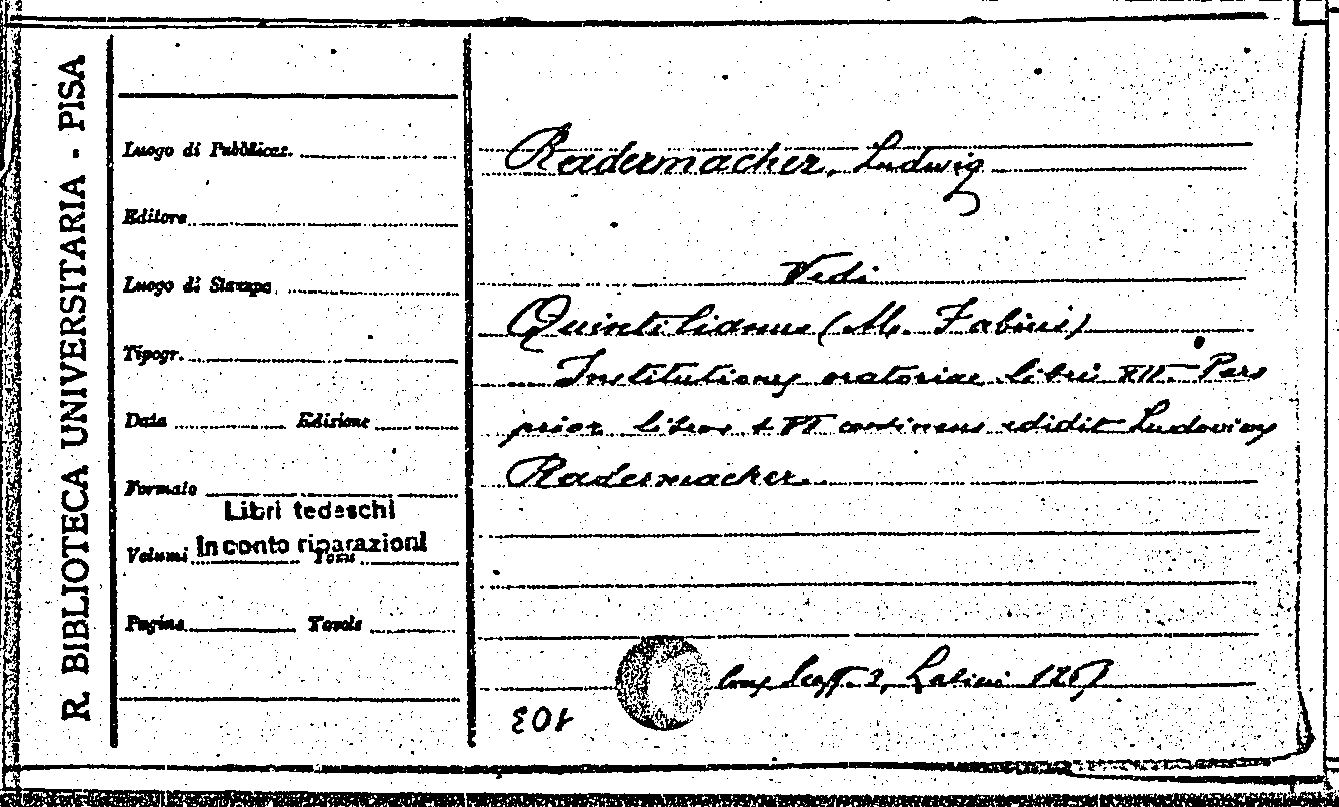 R. BIBLIOTECA UNIVERSITARIA - PISA
Luogo di Pubblicaz.
Editore
Luogo di Stampa
Tipogr.
Data Edizione
Formato
Libri tedeschi
In conto riparazioni
Volumi Tomi
Pagine Tavole
Radermacher, Ludwig
Vedi
Quintilianus (M. Fabius)
Institutionis oratoriae libri XII. Pars
prior libros I-VI continens edidit Ludovicus
Radermacher.
Scaff. 2, Latini
103